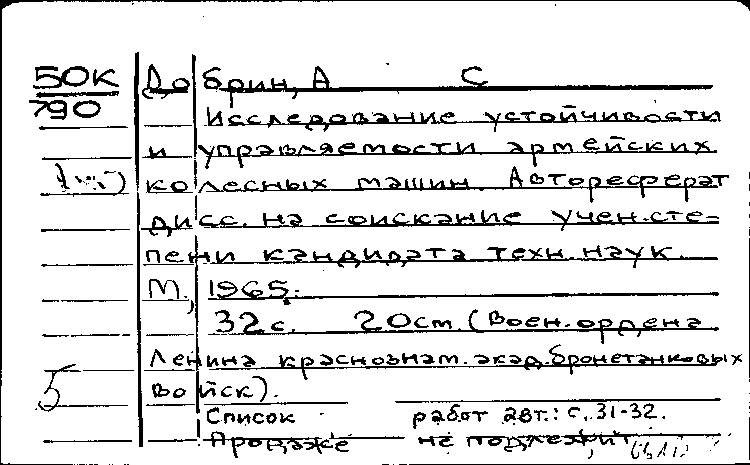 50К
790
Добрин, А С
Исследование устойчивости
и управляемости армейских
колесных машин. Автореферат
дисс. на соискание учен. сте-
пени кандидата техн. наук.
М., 1965.
32 с. 20 см. (Воен. ордена
Ленина краснознам. акад. бронетанковых
войск).
5
Список работ авт.: с. 31-32.
Продаже не подлежит.